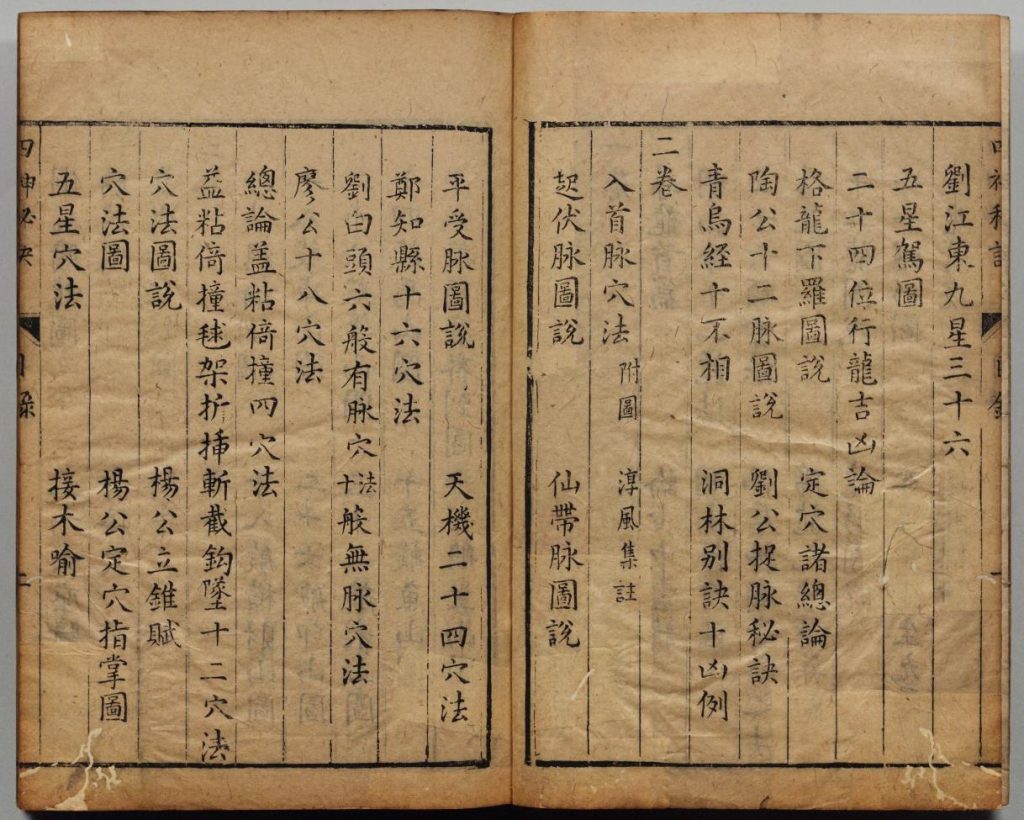 劉江東九星三十六
五星駕圖
二十四位行龍吉凶論
格龍下羅圖說 定穴諸總論
陶公十二脉圖説 劉公捉脉秘訣
青烏經十不相 洞林别訣十凶例
二卷
入首脉穴法 附圖 淳風集註
起伏脉圖説 仙帶脉圖説
平受脉圖説 天機二十四穴法
鄭知縣十六穴法
劉白頭六般有脉穴法 十般無脉穴法
廖公十八穴法
總論盖粘倚撞四穴法
盖粘倚撞毬架折揷斬截鈎墜十二穴法
穴法圖説 楊公立錐賦
穴法圖 楊公定穴指掌圖
五星穴法 接木喻